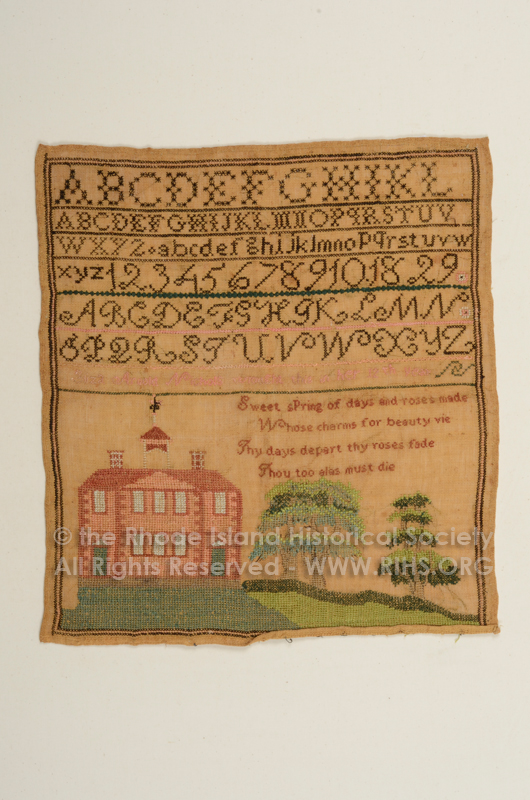 ABCDEFGHIKL
ABCDEFGHIJKLMNOPQRSTUV
WXYZ abcdefghijklmnopqrstuvw
xyz 1 2 3 4 5 6 7 8 9 10 18 29
ABCDEFGHIKLMN
OPQRSTUVWXYZ
Sweet spring of days and roses made
Whose charms for beauty vie
Thy days depart thy roses fade
Thou too alas must die
© the Rhode Island Historical Society
All Rights Reserved - WWW.RIHS.ORG